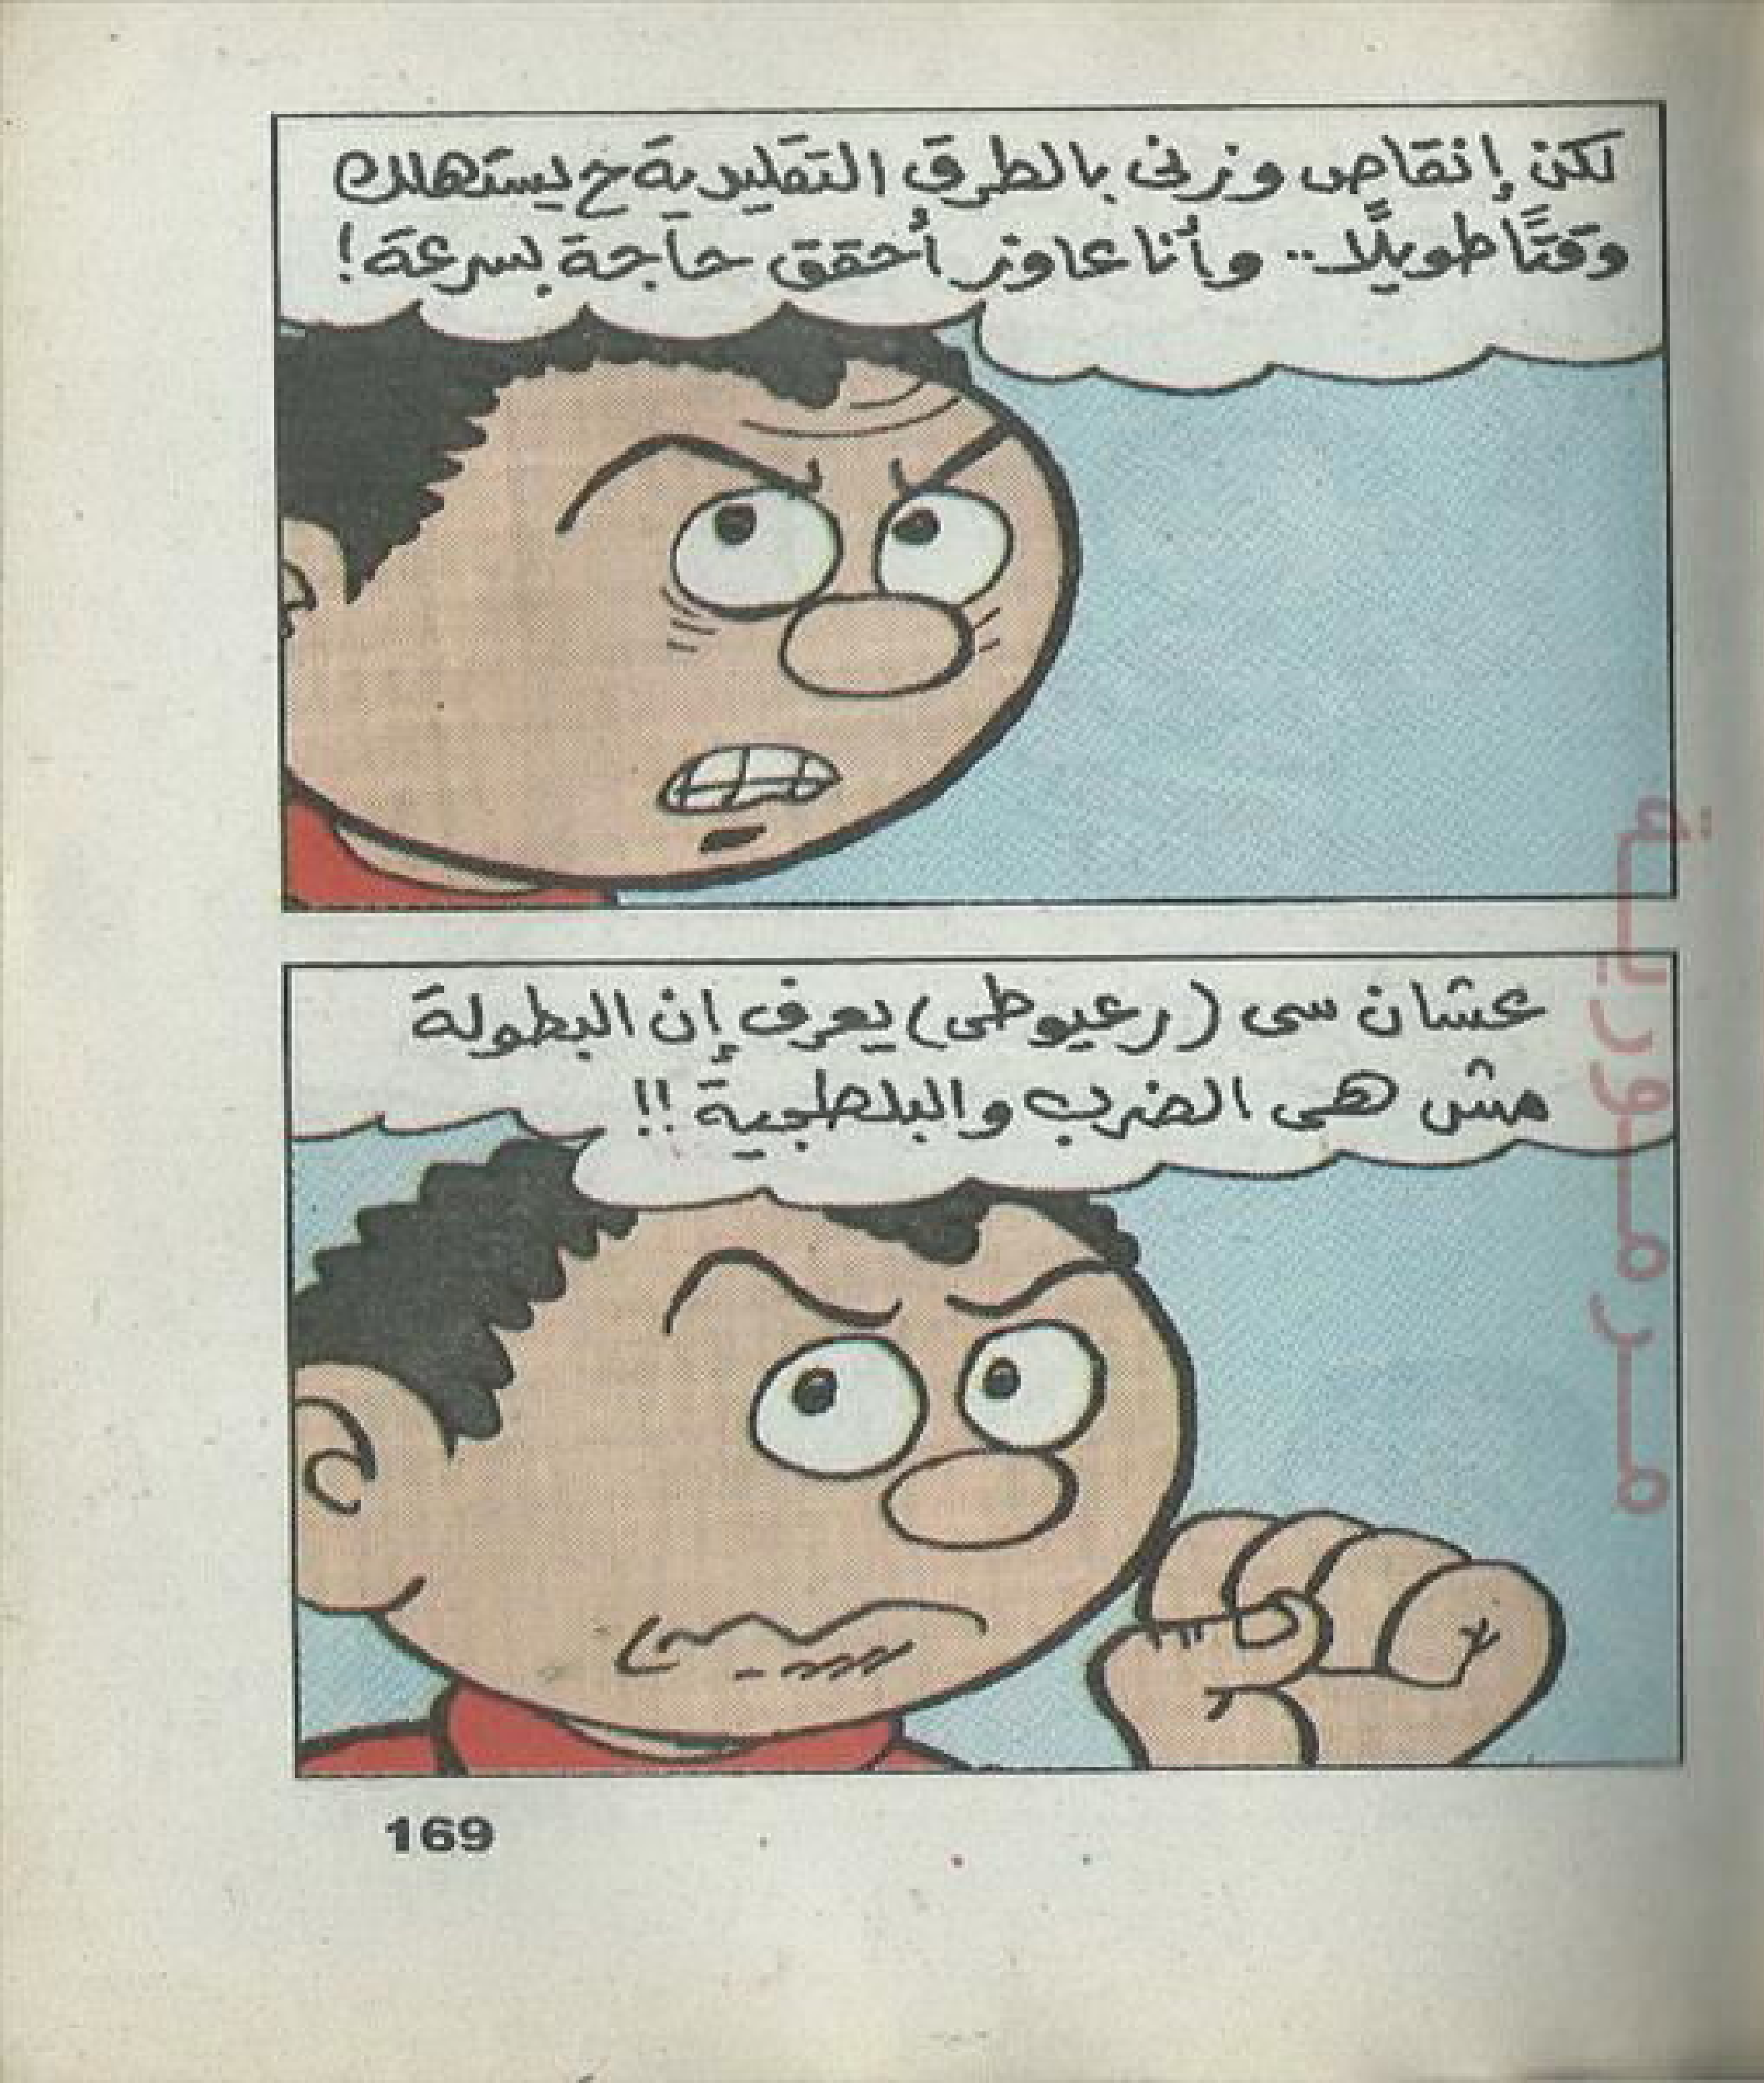 لكن إنقاص وزنى بالطرق التقليدية ح يستهلك
وقتًا طويلًا.. وأنا عاوز أحقق حاجة بسرعة!
عشان سى (رعيوطى) يعرف إن البطولة
مش هى الضرب والبلطجية!!
169
مرمورية